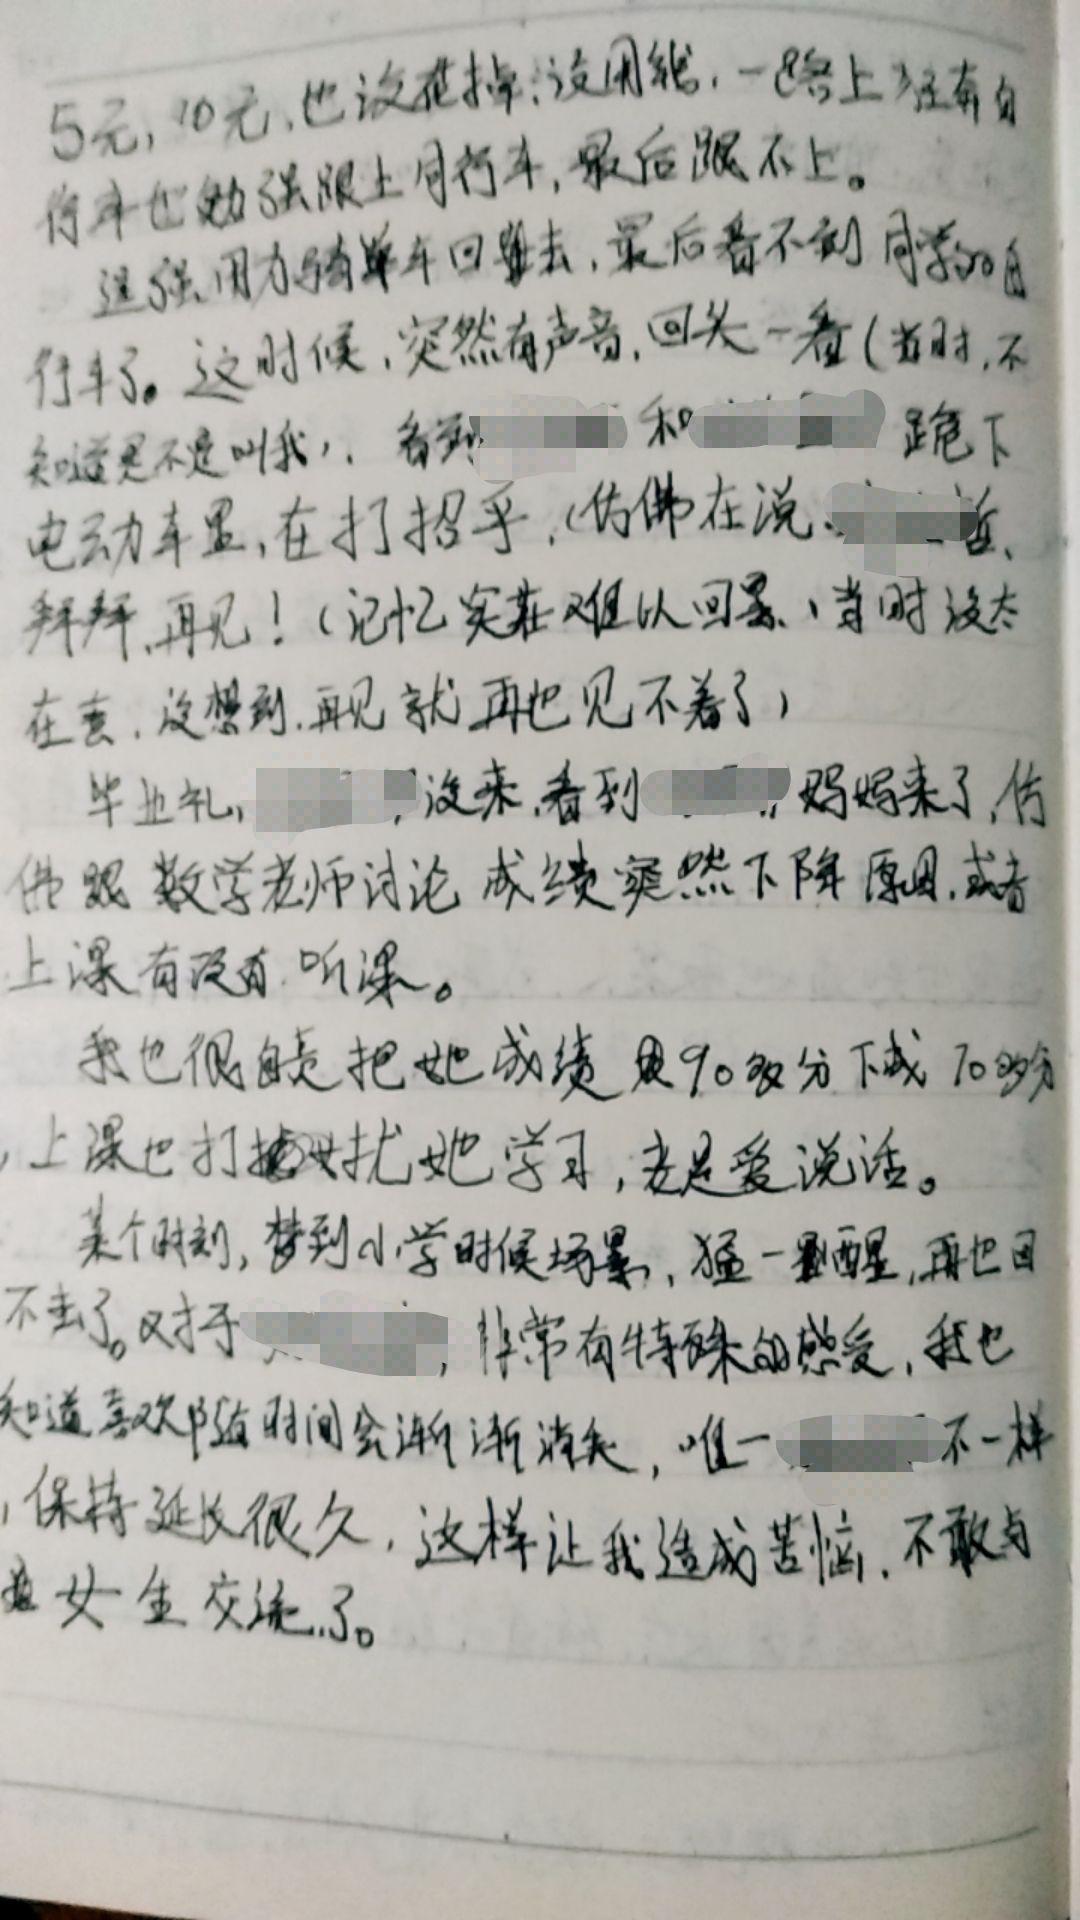 5元，10元，也没花掉，没用钱，一路上还有自
行车也勉强跟上同行车，最后跟不上。
逞强用力骑单车回去，最后看不到同学的自
行车了。这时候，突然有声音，回头一看（当时，不
知道是不是叫我），看到 和 跪下
电动车里，在打招呼，（仿佛在说
拜拜，再见！（记忆实在难以回，当时没太
在意，没想到，再见就再也见不着了）
毕业礼， 没来，看到 妈妈来了，仿
佛跟数学老师讨论成绩突然下降原因，或者
上课有没有听课。
我也很自责把她成绩 90多分下成70多分
，上课也打扰她学习，老是爱说话。
某个时刻，梦到小学时候场景，猛一醒，再也回
不去了。对于 ，非常有特殊的感受，我也
知道喜欢随时间会渐渐消失，唯一 不一样
，保持延长很久，这样让我造成苦恼，不敢与
女生交流了。